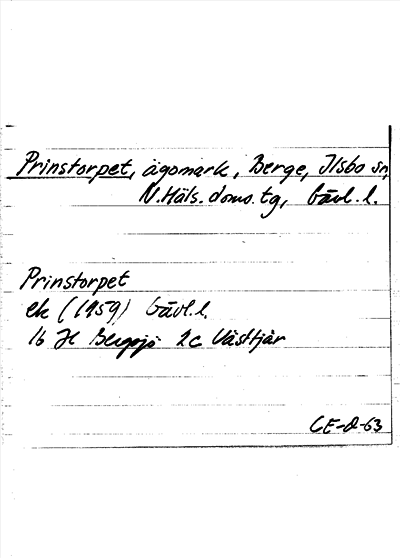 Prinstorpet, ägomark, Berge, Ilsbo sn,
N. Häls. doms. tg, Gävl. l.
Prinstorpet
ek (1959) Gävl. l.
16 H Bergsjö 2c Västtjär
CE-D-63